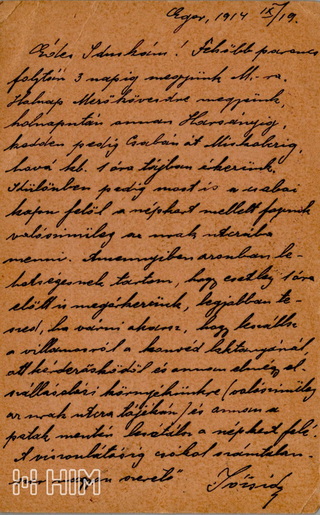 Eger, 1914 IX/19.
Édes Iduskám! Felsőbb parancs
folytán 3 napig megyünk M.-ra.
Holnap Mezőkövesdre megyünk,
holnapután annan Harsányig,
kedden pedig Csabán át Miskolczig,
hová kb. 1 óra tájban érkezünk.
Különben pedig most is a csabai
kapu felől a népkert mellett fogunk
valószinüleg az utczába
menni. Amennyiben azonban le-
hetségesnek tartom, hogy esetleg 1 óra
előtt is megérkezünk, legjobban te-
szed, ha várni akarsz, hogy leszállsz
a villamosról a honvéd laktanyánál,
ott kérdezősködöl és annan elnézel
szállásolási környékünkre (valószinüleg
az utcza tájékán) és annan a
patak mentén lesétálsz a népkert felé.
A viszontlátásig csókol számtalan-
szor szerető
HIM